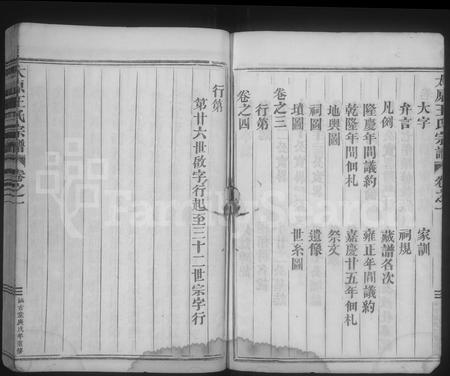 太原王氏宗譜 卷之一
大字 家訓
弁言 祠規
凡例 藏譜名次
隆慶年間議約 雍正年間議約
乾隆年間個札 嘉慶廿五年個札
地輿圖 祭文
祠圖 遺像
墳圖 世系圖
卷之三
行第
卷之四
行第
第廿六世啟字行起至三十二世宗字行
太原王氏宗譜 卷之一
FamilySearch